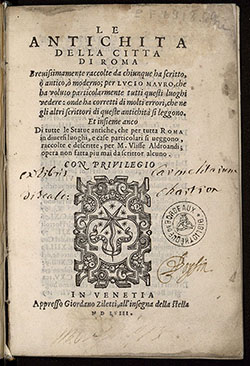 LE
ANTICHITA
DELLA CITTA
DI ROMA
Breuissimamente raccolte da chiunque ha scritto,
ò antico, ò moderno; per LUCIO MAURO, che
ha voluto particolarmente tutti questi luoghi
vedere: onde ha corretti di molti errori, che ne
gli altri scrittori di queste antichità si leggono.
Et insieme anco
Di tutte le Statue antiche, che per tutta ROMA
in diuersi luoghi, e case particolari si ueggono,
raccolte e descritte, per M. Vlisse Aldroandi;
opera non fatta piu mai da scrittor alcuno.
CON PRIVILEGIO
ex libris Carmelitarum
IN VENETIA
Appresso Giordano Ziletti, all'insegna della stella